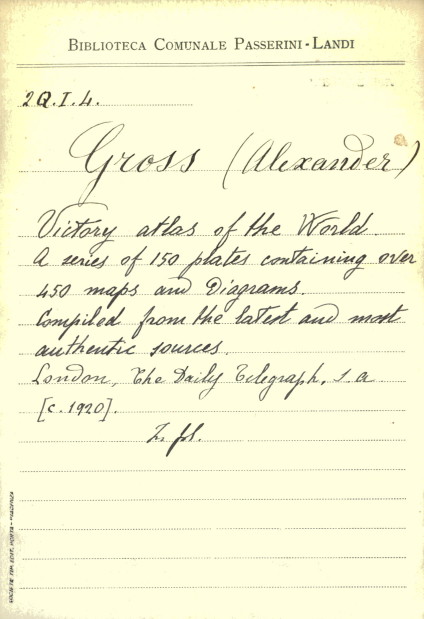 BIBLIOTECA COMUNALE PASSERINI-LANDI
2Q.I.4.
Gross (Alexander)
Victory atlas of the World.
A series of 150 plates containing over
450 maps and Diagrams.
Compiled from the latest and most
authentic sources.
London, The Daily Telegraph, s.a
[c.1920].